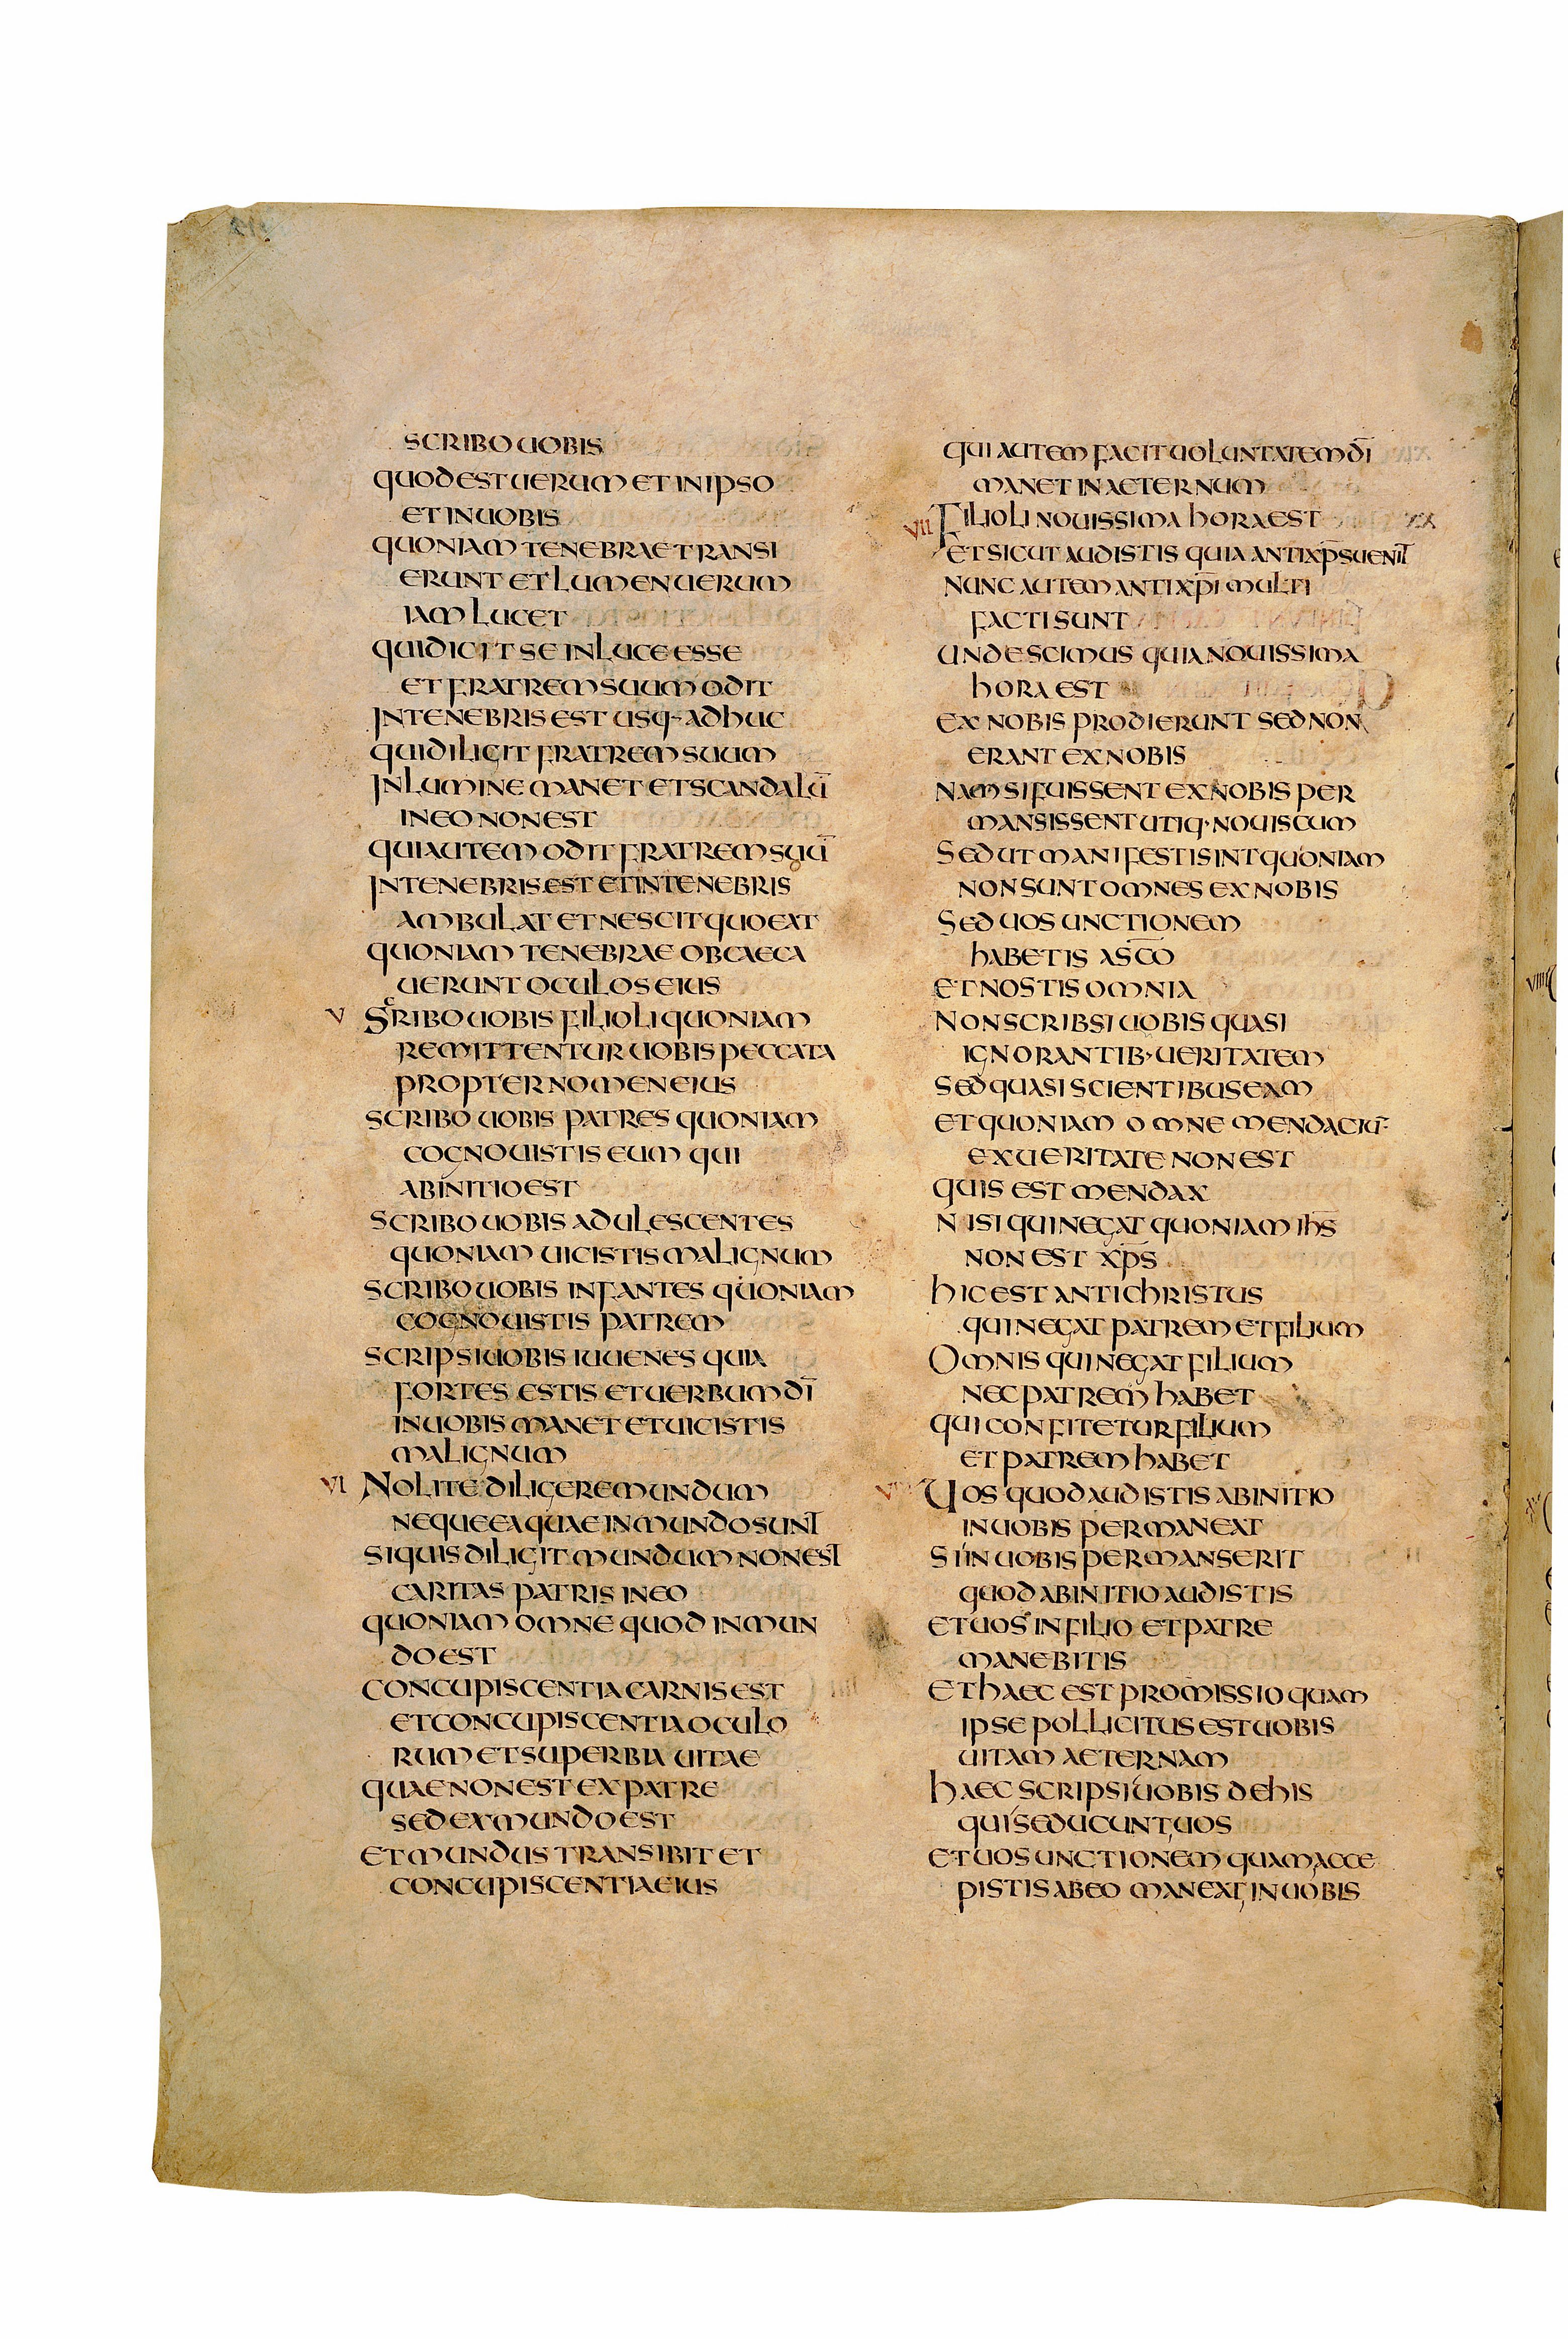 SCRIBO UOBIS
QUOD EST UERUM ET IN IPSO
ET IN UOBIS
QUONIAM TENEBRAE TRANSI
ERUNT ET LUMEN UERUM
IAM LUCET
QUI DICIT SE IN LUCE ESSE
ET FRATREM SUUM ODIT
IN TENEBRIS EST USQ· ADHUC
QUI DILIGIT FRATREM SUUM
IN LUMINE MANET ET SCANDALŪ
IN EO NON EST
QUI AUTEM ODIT FRATREM SUŪ
IN TENEBRIS EST ET IN TENEBRIS
AMBULAT ET NESCIT QUO EAT
QUONIAM TENEBRAE OBCAECA
UERUNT OCULOS EIUS
V SCRIBO UOBIS FILIOLI QUONIAM
REMITTENTUR UOBIS PECCATA
PROPTER NOMEN EIUS
SCRIBO UOBIS PATRES QUONIAM
COGNOUISTIS EUM QUI
AB INITIO EST
SCRIBO UOBIS ADULESCENTES
QUONIAM UICISTIS MALIGNUM
SCRIBO UOBIS INFANTES QUONIAM
COGNOUISTIS PATREM
SCRIPSI UOBIS IUUENES QUIA
FORTES ESTIS ET UERBUM DĪ
IN UOBIS MANET ET UICISTIS
MALIGNUM
VI NOLITE DILIGERE MUNDUM
NEQUE EA QUAE IN MUNDO SUNT
SI QUIS DILIGIT MUNDUM NON EST
CARITAS PATRIS IN EO
QUONIAM OMNE QUOD IN MUN
DO EST
CONCUPISCENTIA CARNIS EST
ET CONCUPISCENTIA OCULO
RUM ET SUPERBIA UITAE
QUAE NON EST EX PATRE
SED EX MUNDO EST
ET MUNDUS TRANSIBIT ET
CONCUPISCENTIA EIUS
QUI AUTEM FACIT UOLUNTATEM DĪ
MANET IN AETERNUM
VII FILIOLI NOUISSIMA HORA EST XX
ET SICUT AUDISTIS QUIA ANTIXP̄S UENIT
NUNC AUTEM ANTIXP̄I MULTI
FACTI SUNT
UNDE SCIMUS QUIA NOUISSIMA
HORA EST
EX NOBIS PRODIERUNT SED NON
ERANT EX NOBIS
NAM SI FUISSENT EX NOBIS PER
MANSISSENT UTIQ· NOUISCUM
SED UT MANIFESTI SINT QUONIAM
NON SUNT OMNES EX NOBIS
SED UOS UNCTIONEM
HABETIS A SC̄O
ET NOSTIS OMNIA
NON SCRIBSI UOBIS QUASI
IGNORANTIB· UERITATEM
SED QUASI SCIENTIBUS EAM
ET QUONIAM OMNE MENDACIŪ
EX UERITATE NON EST
QUIS EST MENDAX
NISI QUI NEGAT QUONIAM IH̄S
NON EST XP̄S
HIC EST ANTICHRISTUS
QUI NEGAT PATREM ET FILIUM
OMNIS QUI NEGAT FILIUM
NEC PATREM HABET
QUI CONFITETUR FILIUM
ET PATREM HABET
UOS QUOD AUDISTIS AB INITIO
IN UOBIS PERMANEAT
SI IN UOBIS PERMANSERIT
QUOD AB INITIO AUDISTIS
ET UOS IN FILIO ET PATRE
MANEBITIS
ET HAEC EST PROMISSIO QUAM
IPSE POLLICITUS EST UOBIS
UITAM AETERNAM
HAEC SCRIPSI UOBIS DE HIS
QUI SEDUCUNT UOS
ET UOS UNCTIONEM QUAM ACCE
PISTIS AB EO MANEAT IN UOBIS